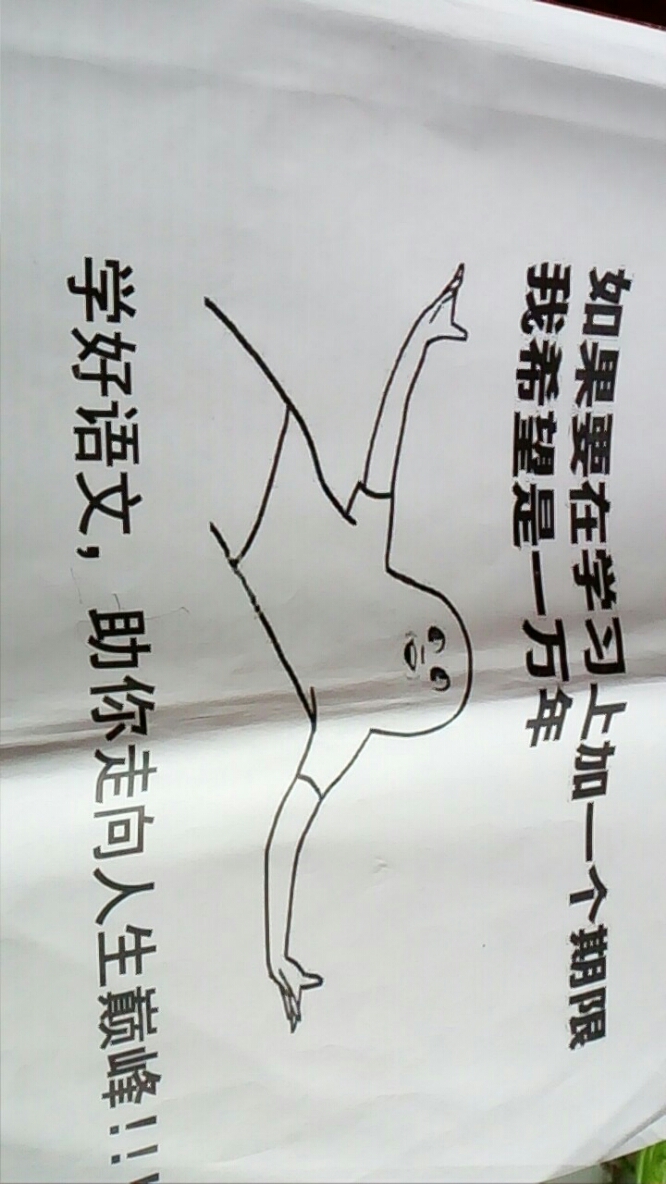 如果要在学习上加一个期限
我希望是一万年
学好语文，助你走向人生巅峰！！！